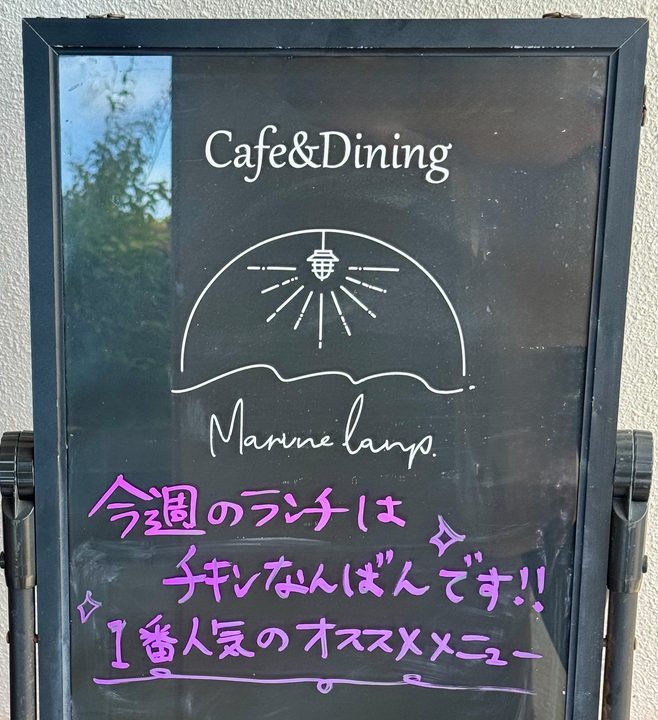 Cafe&Dining
Marine lamp.
今週のランチは
チキンなんばんです!!
1番人気のオススメメニュー